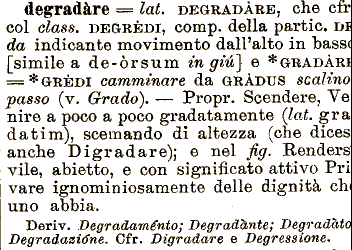 degradàre = lat. DEGRADÀRE, che cfr
col class. DEGRĔDI, comp. della partic. DE
da indicante movimento dall'alto in basso
[simile a de-òrsum in giú] e *GRADÀRE
= *GRĔDI camminare da GRÀDUS scalino
passo (v. Grado). — Propr. Scendere, Ve
nire a poco a poco gradatamente (lat. gra
datim), scemando di altezza (che dices
anche Digradare); e nel fig. Renders
vile, abietto, e con significato attivo Pri
vare ignominiosamente delle dignità ch
uno abbia.
Deriv. Degradaménto; Degradànte; Degradàto
Degradazióne. Cfr. Digradare e Degressione.